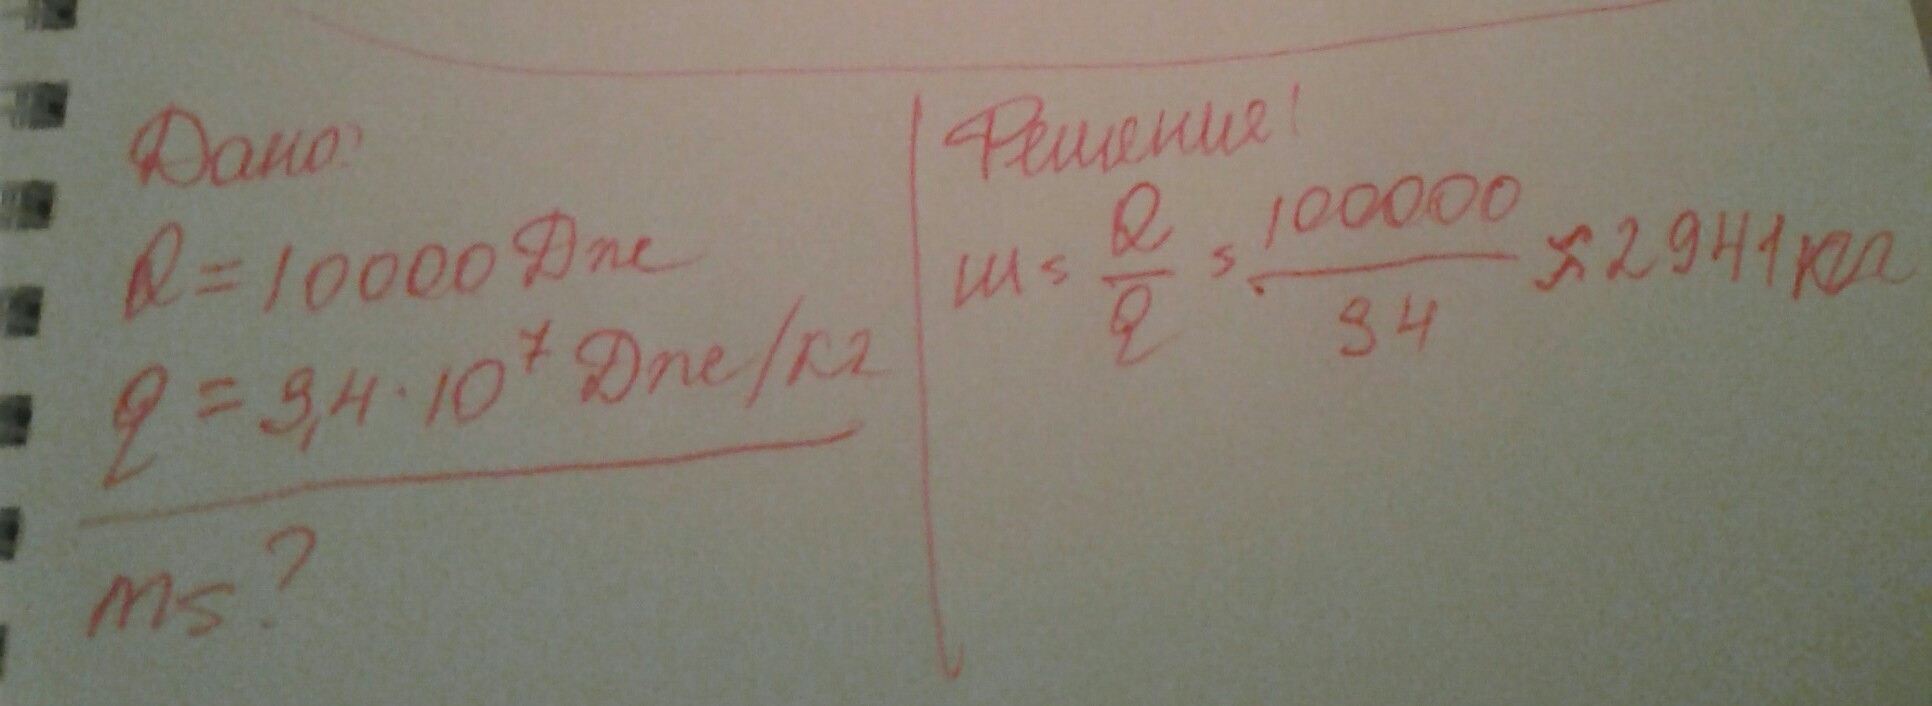 Дано:
Q = 10000 Дж
q = 3,4 · 10⁷ Дж/кг
m = ?
Решение:
m = Q/q = 100000/34 ≈ 2941 кг